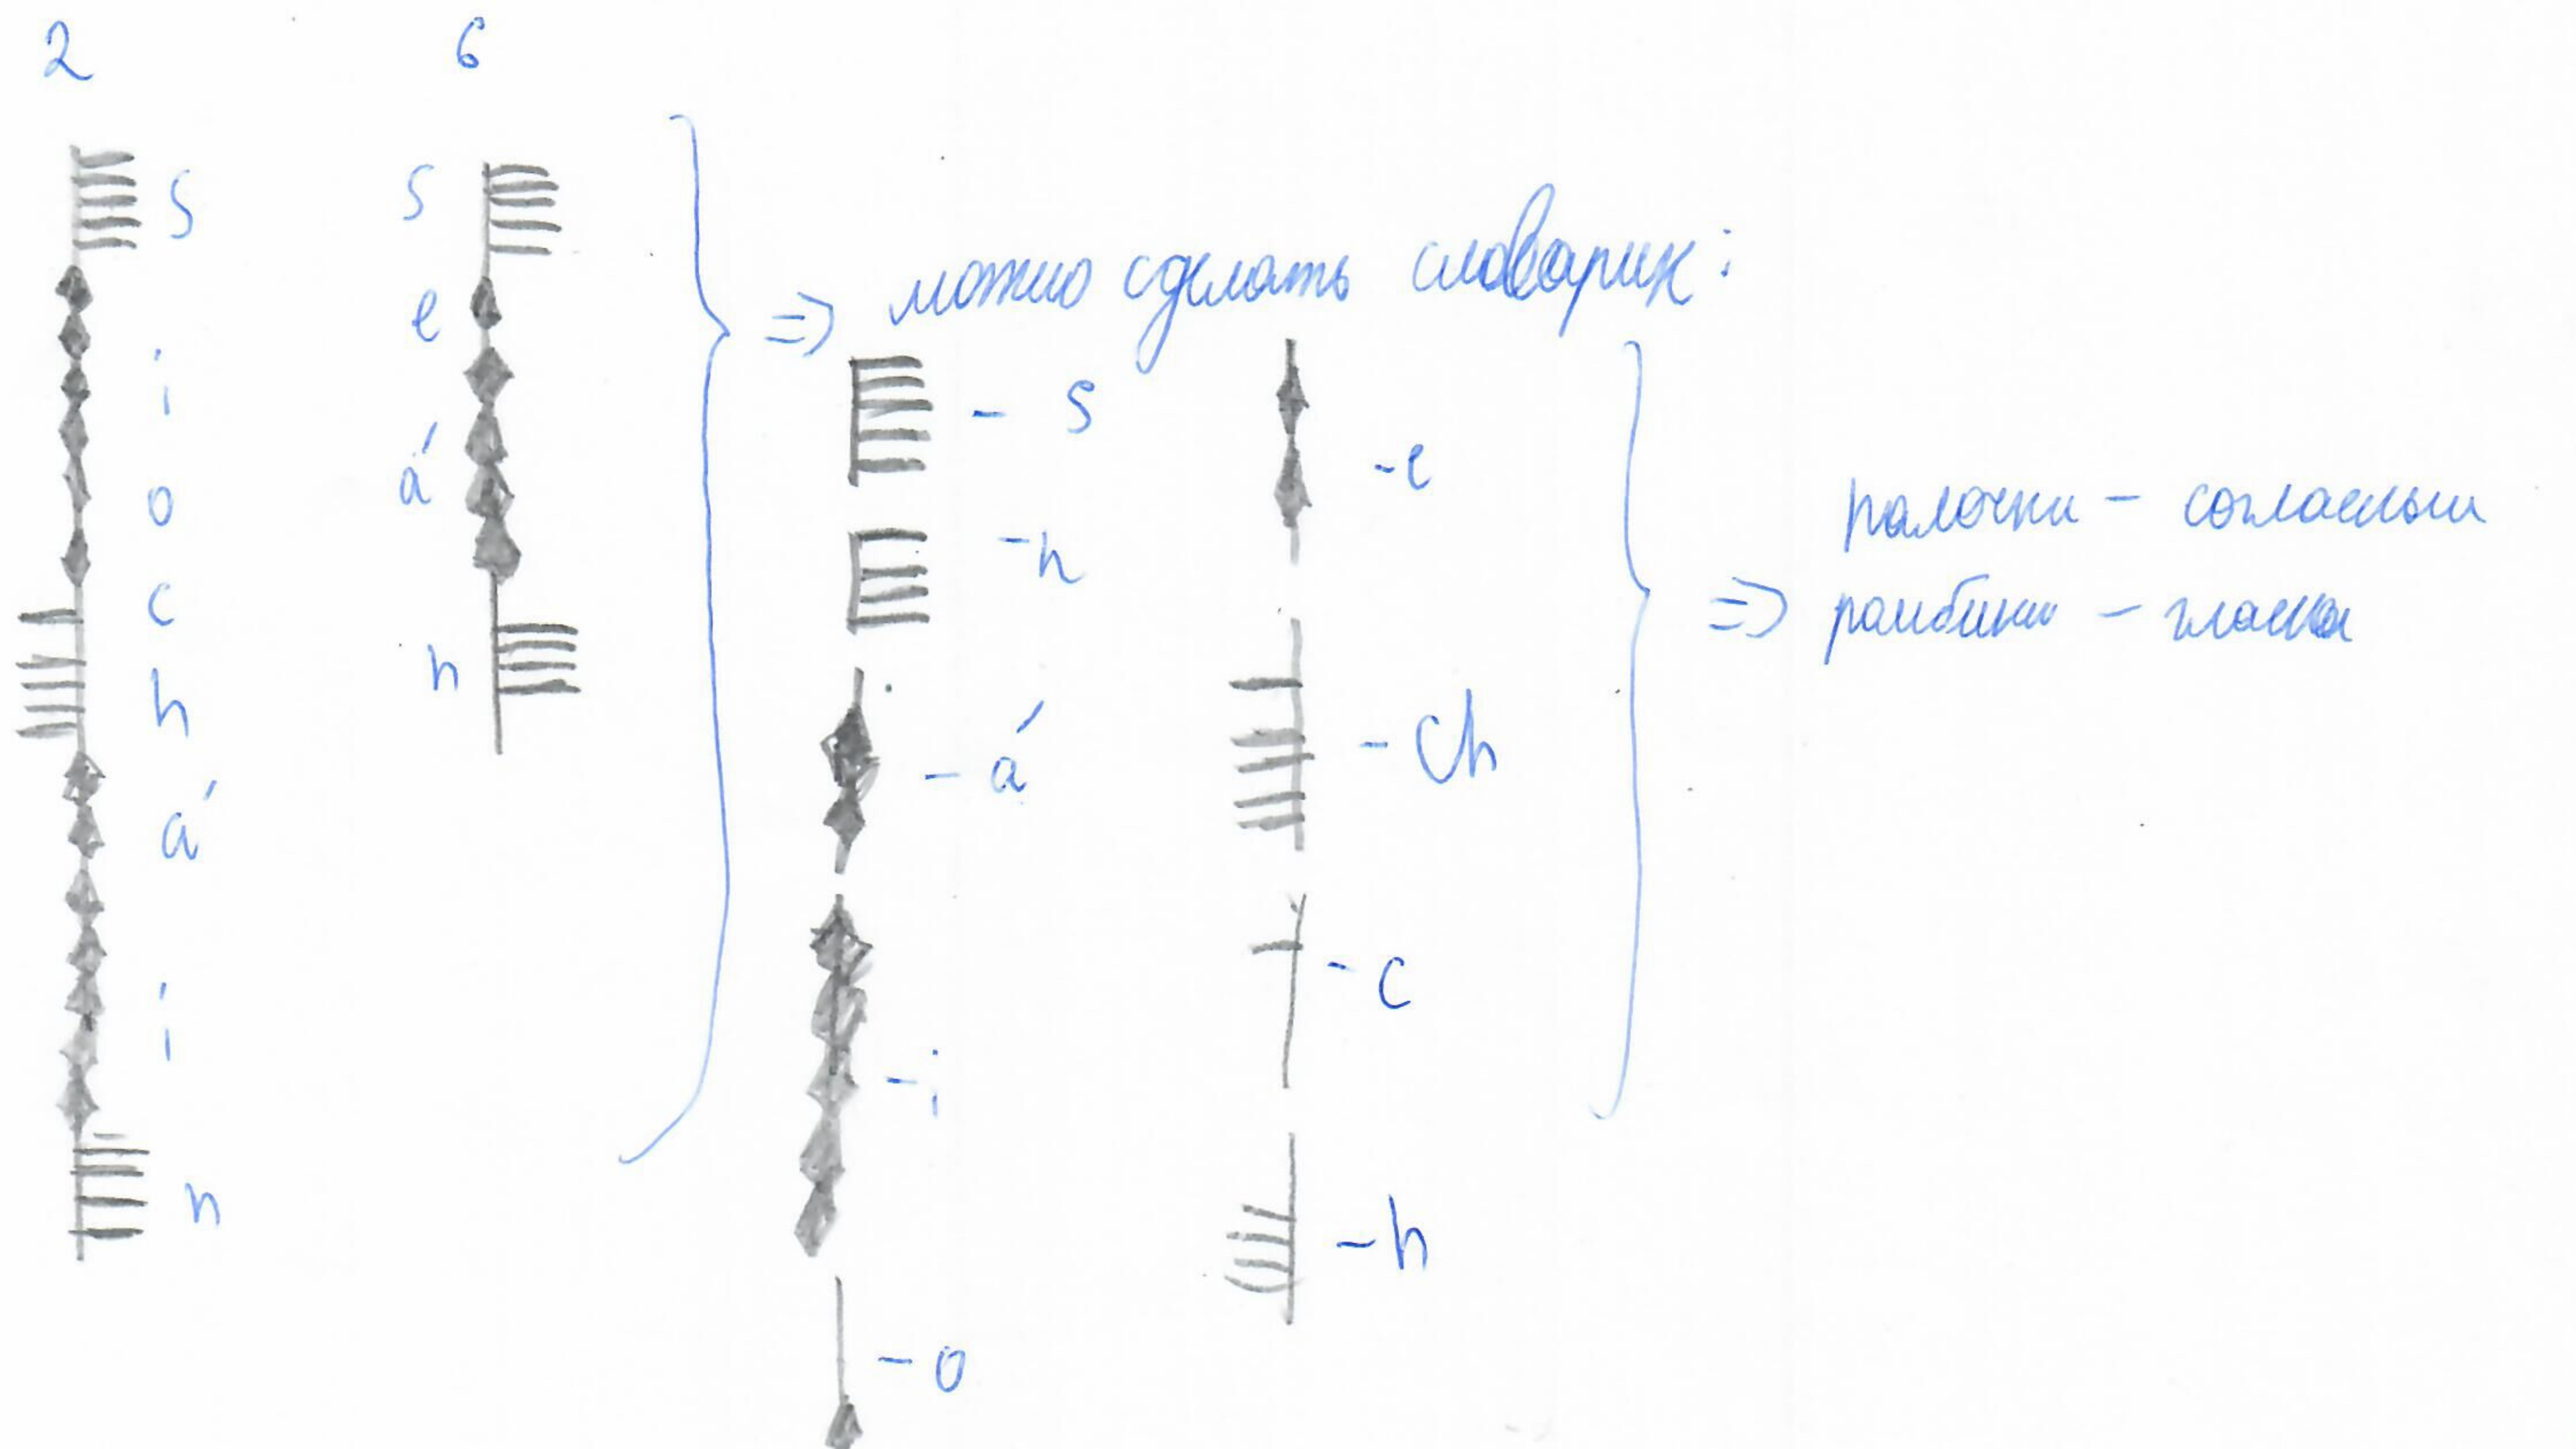 2
6
s
i
o
c
h
á
i
n
s
e
á
n
=> можно сделать словарик:
- s
- n
- á
- i
- o
- e
- ch
- c
- h
=> палочки - согласные
ромбики - гласн